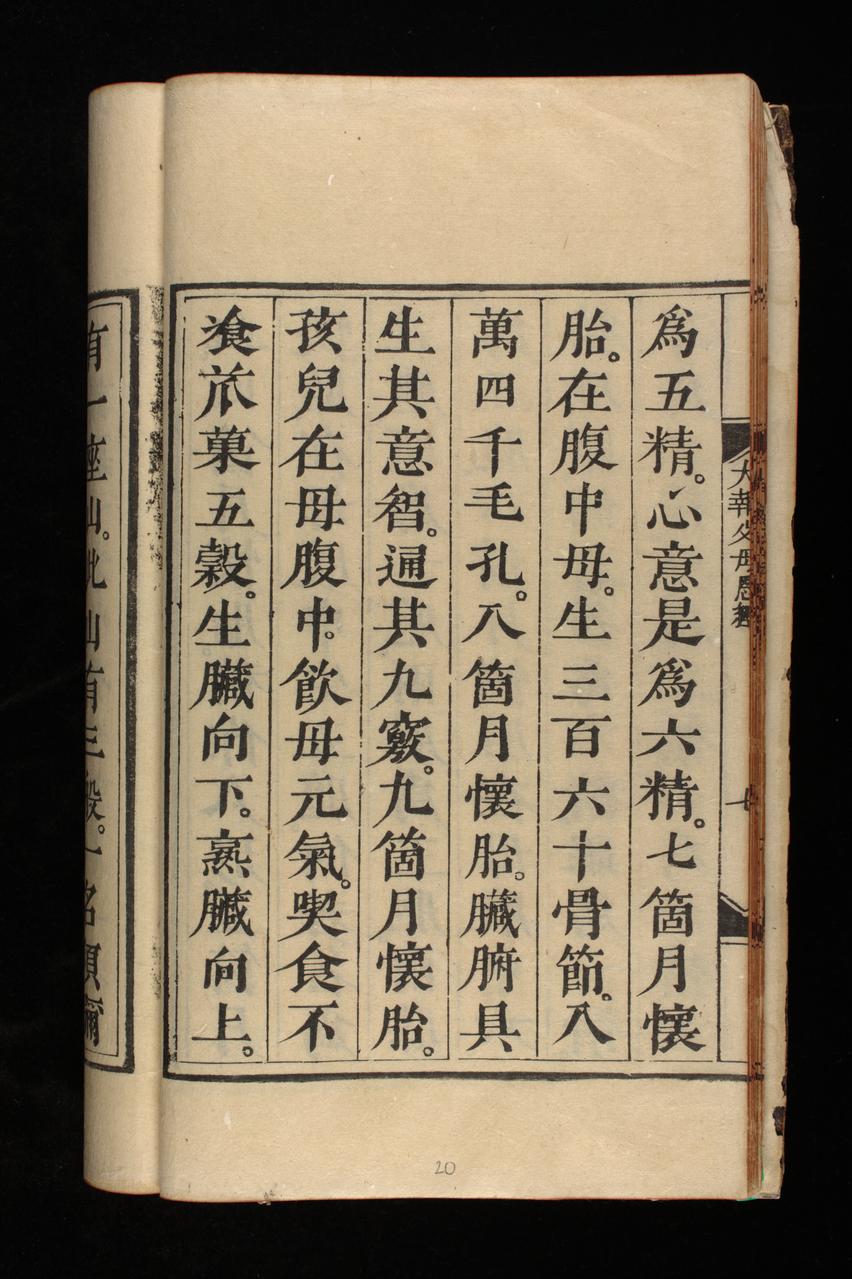 大報父母恩經
七
爲五精。心意是爲六精。七箇月懷
胎。在腹中母。生三百六十骨節。八
萬四千毛孔。八箇月懷胎。臟腑具
生其意智。通其九竅。九箇月懷胎。
孩兒在母腹中。飲母元氣。喫食不
飡苽菓五穀。生臟向下。熟臟向上。
有一座山。此山有三般。一名須彌
20